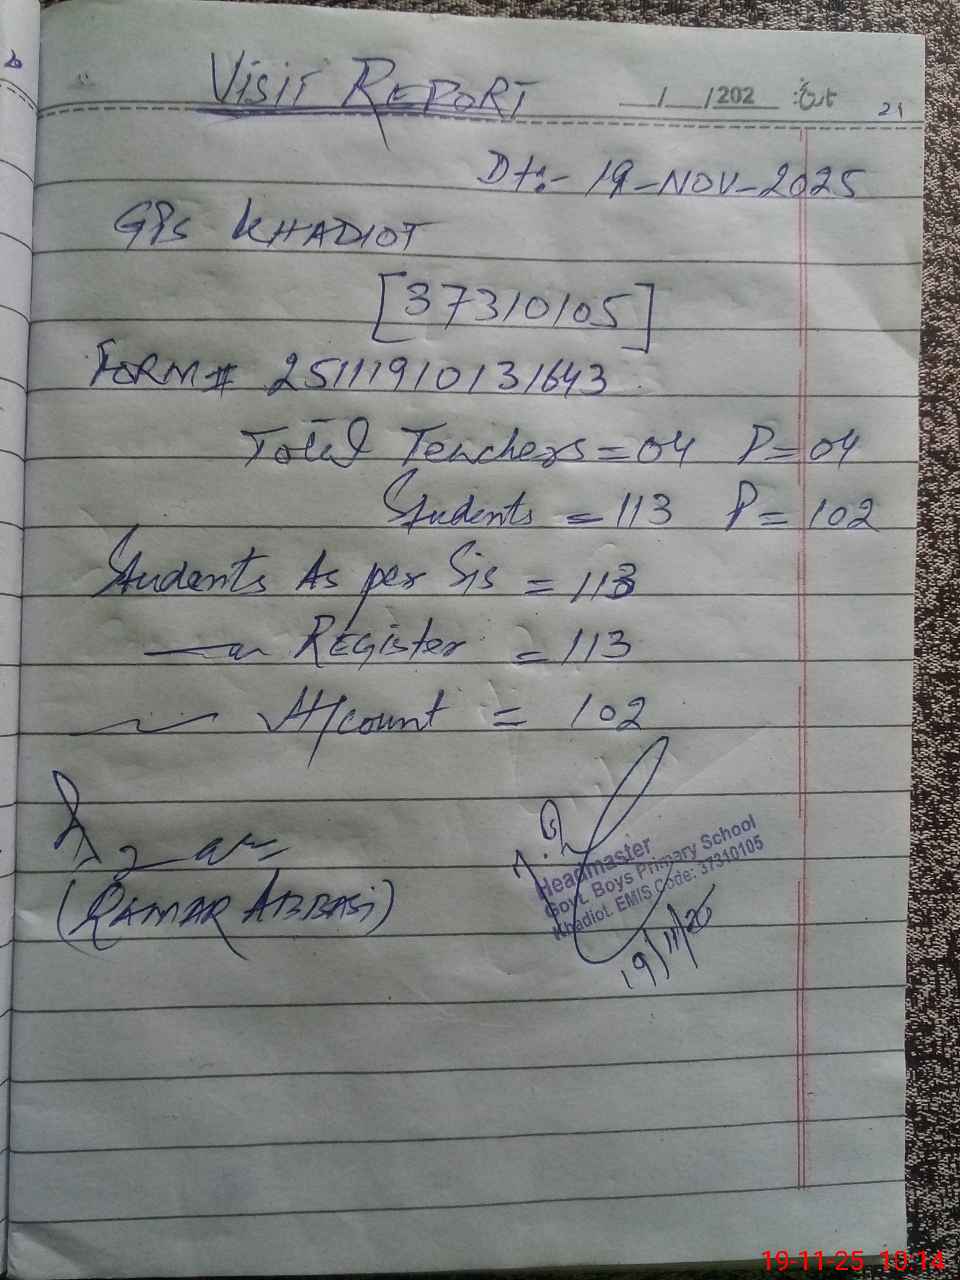 VISIT REPORT
__/__/202__ تاریخ:
21
Dt:- 19-NOV-2025
GPS KHADIOT
[37310105]
FORM# 25111910131643
Total Teachers = 04 P= 04
Students = 113 P= 102
Students As per Sis = 113
Register = 113
H/count = 102
(QAMAR ABBASi)
Headmaster
Govt. Boys Primary School
Khadiot. EMIS Code: 37310105
19/11/25
19-11-25 10:14